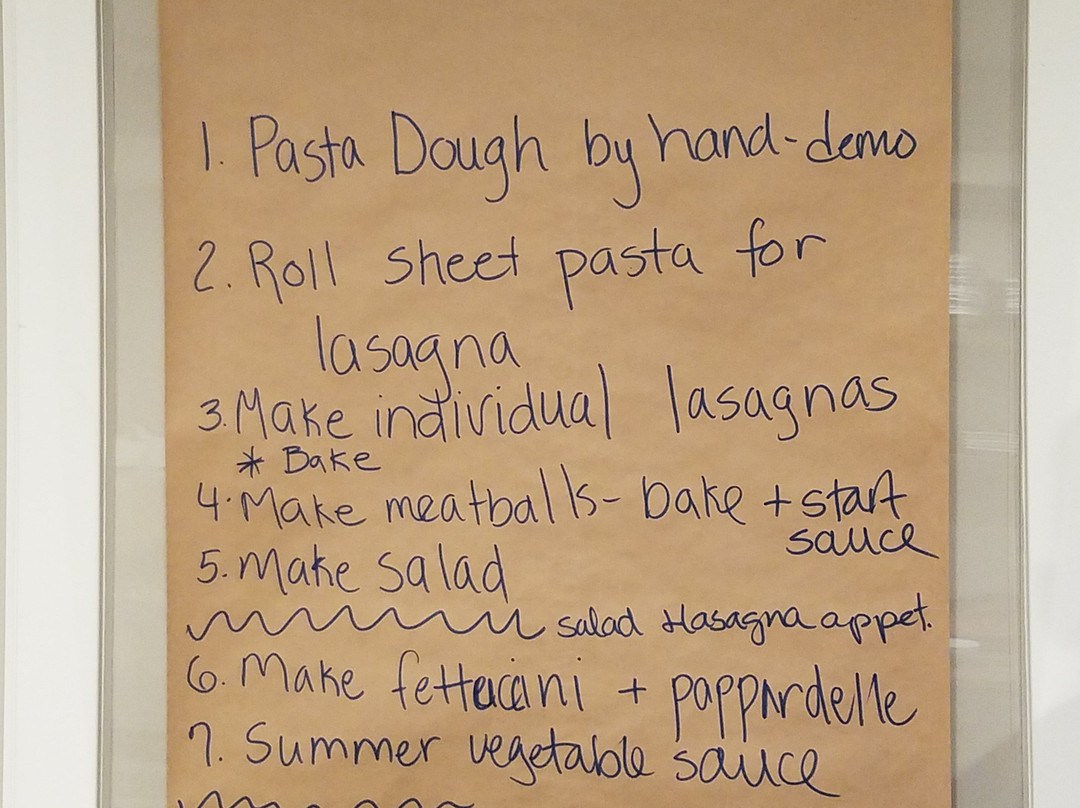 1. Pasta Dough by hand-demo
2. Roll sheet pasta for
lasagna
3. Make individual lasagnas
* Bake
4. Make meatballs - bake + start
sauce
5. Make salad
salad + lasagna appet.
6. Make fettuccini + pappardelle
7. Summer vegetable sauce